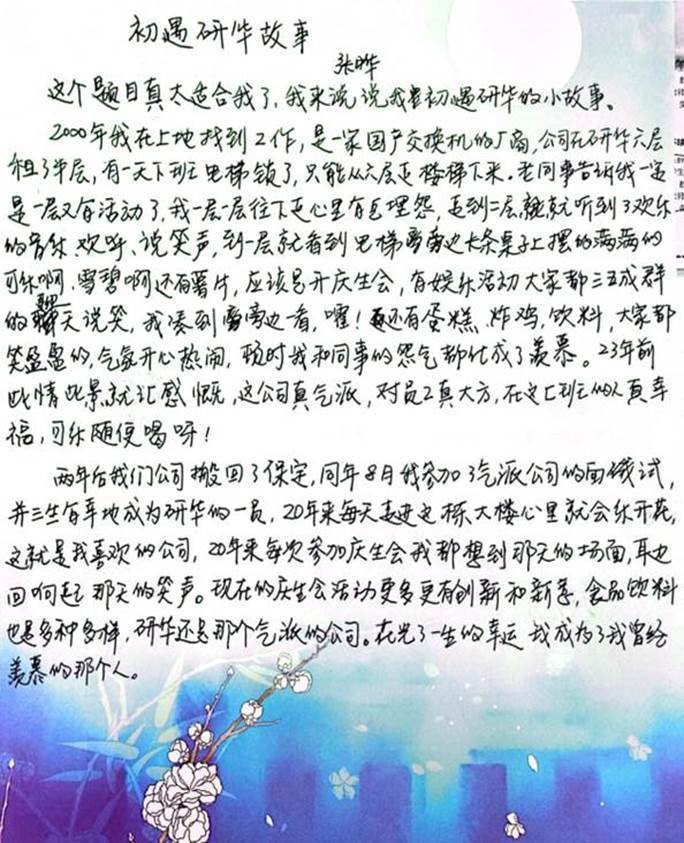 初遇研华故事
张晔
这个题目真太适合我了，我来说说我初遇研华的小故事。
2000年我在上地找到工作，是一家国产交换机的厂商，公司在研华六层
租了半层，有一天下班电梯锁了，只能从六层走楼梯下来。老同事告诉我一定
是一层又有活动了，我一层一层往下走心里有点埋怨，走到二层就听到了欢乐
的音乐、欢呼、说笑声，到一层就看到电梯旁边长条桌子上摆的满满的
可乐啊、雪碧啊还有薯片，应该是开庆生会，有娱乐活动大家都三五成群
的聊天说笑，我凑到旁边一看，嚯！还有蛋糕、炸鸡，饮料，大家都
笑盈盈的，气氛开心热闹，顿时我和同事的怨气都化成了羡慕。23年前
此情此景就汇感慨，这公司真气派，对员工真大方，在这上班的人真幸
福，可乐随便喝呀！
两年后我们公司搬回了保定，同年8月我参加了气派公司的面试，
并三生有幸地成为研华的一员，20年来每天走进这栋大楼心里就会乐开花，
这就是我喜欢的公司，20年来每次参加庆生会我都想到那天的场面，耳边
回响起那天的笑声。现在的庆生会活动更多更有创新和新意，食品饮料
也是多种多样，研华还是那个气派的公司。在光了一生的幸运 我成为了我曾经
羡慕的那个人。